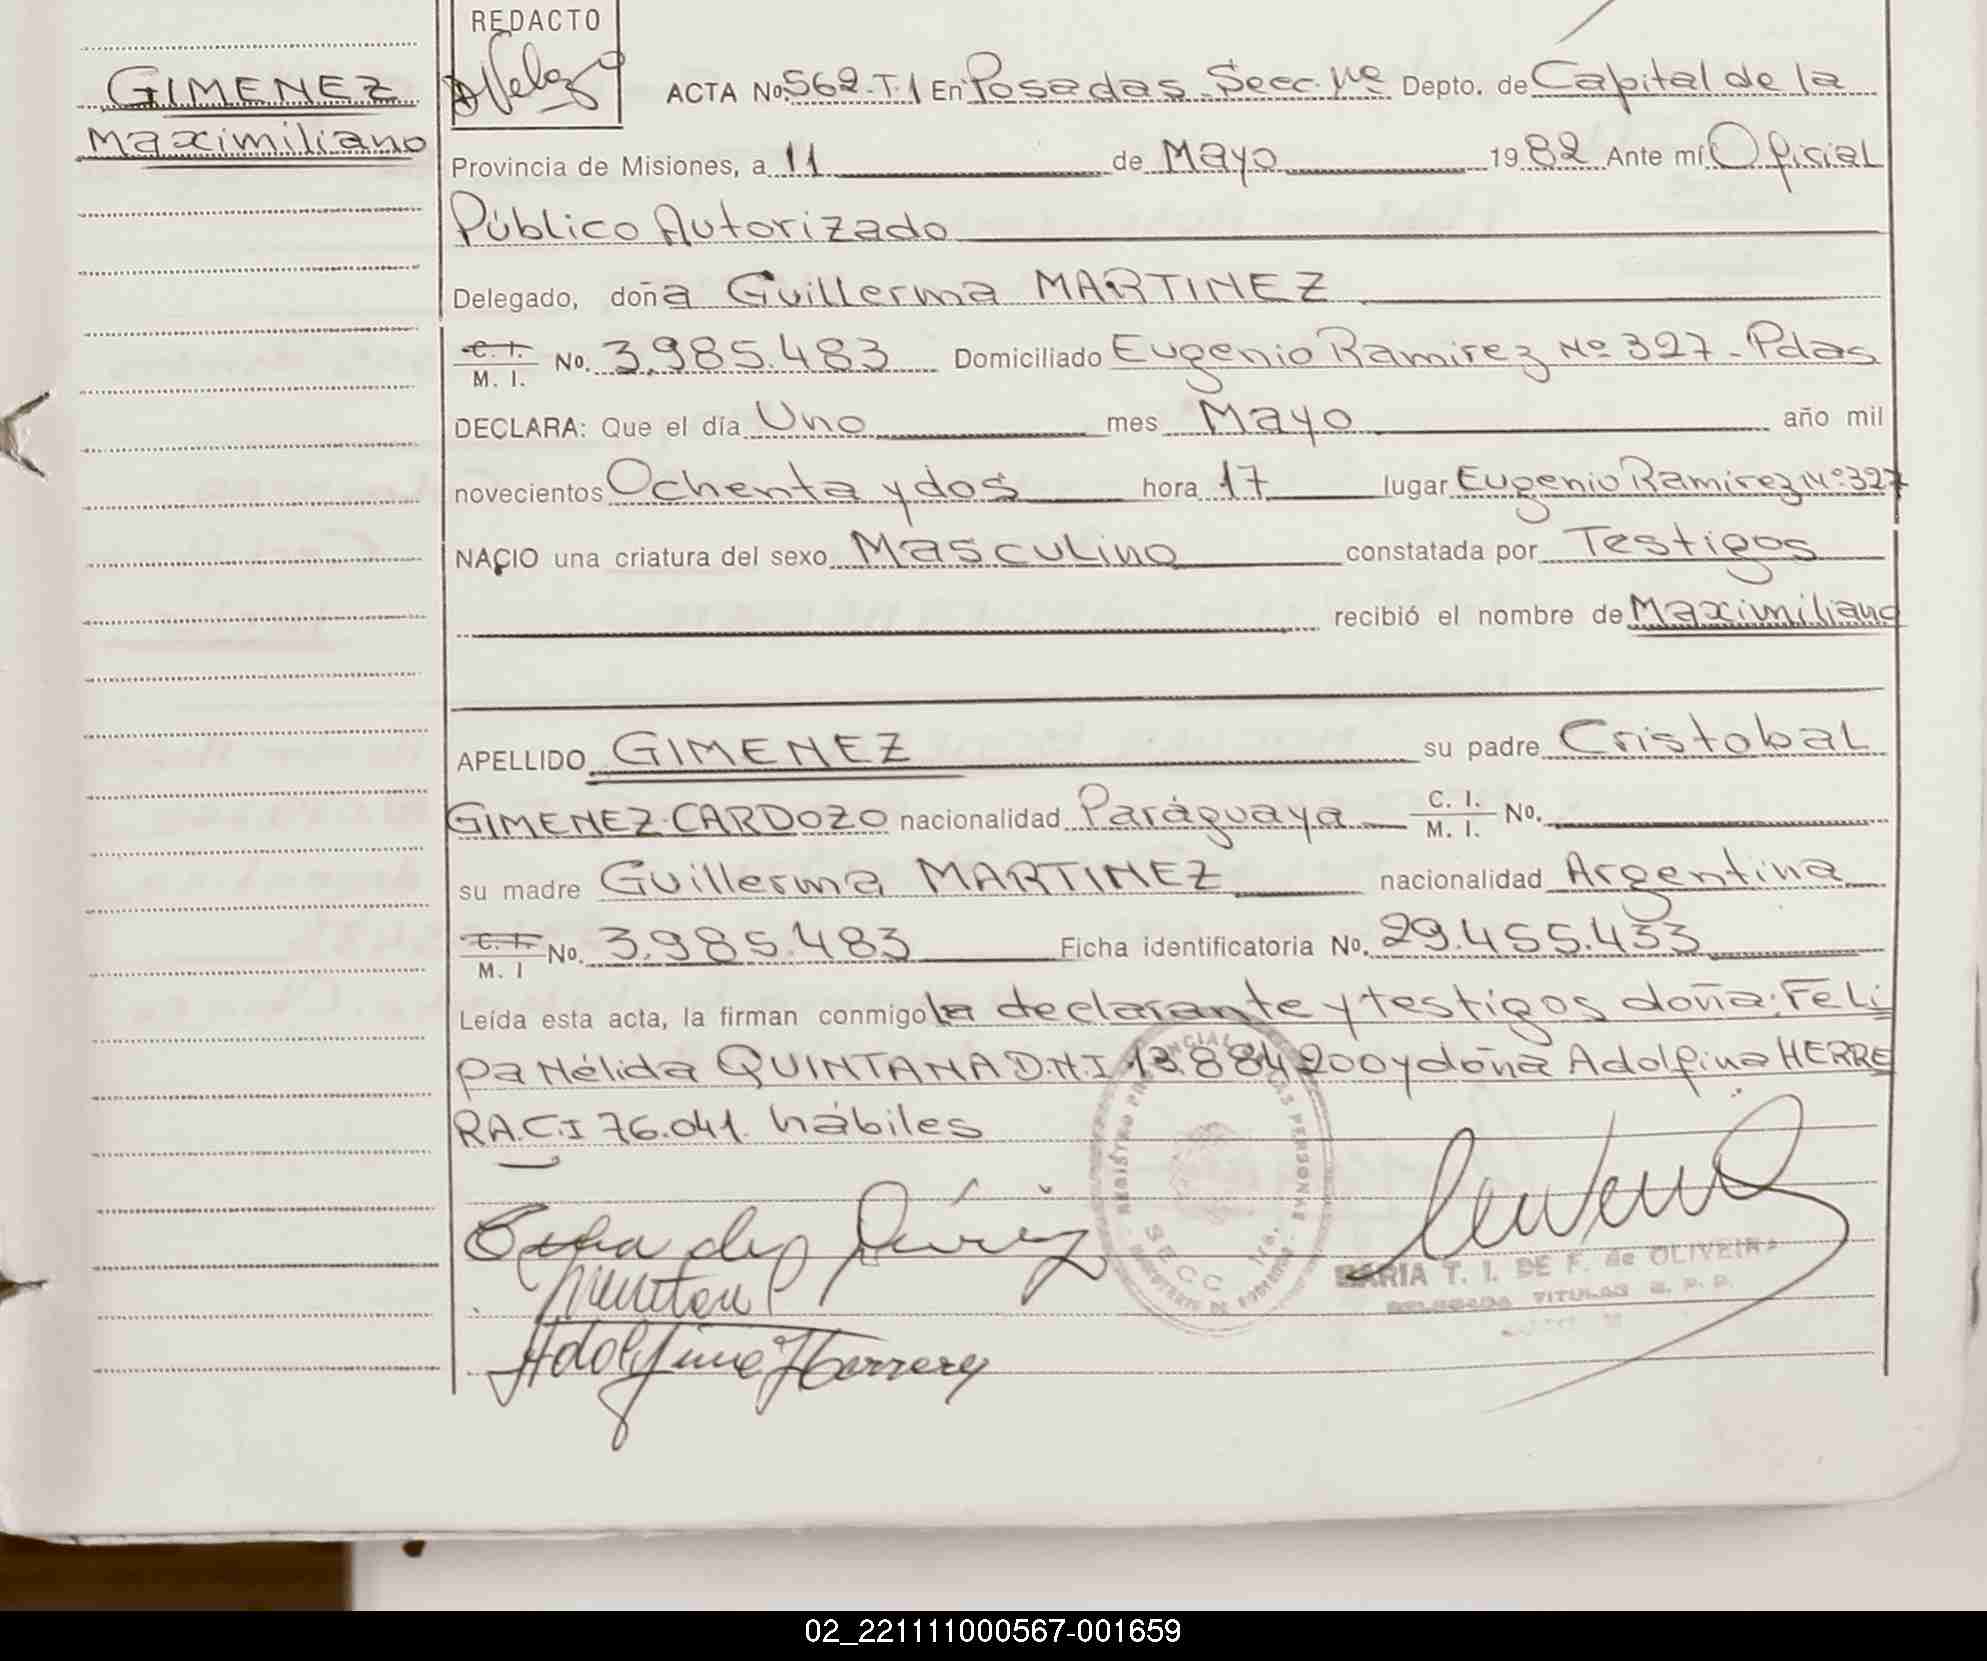 REDACTO
GIMENEZ
Maximiliano
ACTA No. 562-T.1 En Posadas Secc. 1ra Depto. de Capital de la
Provincia de Misiones, a 11 de Mayo 1982 Ante mí Oficial
Público Autorizado
Delegado, doña Guillerma MARTINEZ
C. I. M. I. No. 3.985.483 Domiciliado Eugenio Ramirez Nº 327 - Pdas
DECLARA: Que el día Uno mes Mayo año mil
novecientos Ochenta y dos hora 17 lugar Eugenio Ramirez Nº 327
NACIO una criatura del sexo Masculino constatada por Testigos
recibió el nombre de Maximiliano
APELLIDO GIMENEZ su padre Cristobal
GIMENEZ CARDOZO nacionalidad Paráguaya C. I. M. I. No.
su madre Guillerma MARTINEZ nacionalidad Argentina
C. I. M. I No. 3.985.483 Ficha identificatoria No. 29.455.433
Leída esta acta, la firman conmigo la declarante y testigos doña: Feli
pa Nélida QUINTANA D.N.I 13.884.200 y doña Adolfina HERRE
RA. C.I 76.041. hábiles
Adolfina Herrera
SECC 1ra.
MARIA T. I. DE F. de OLIVEIRA
DELEGADA TITULAR R. P. P.
02_221111000567-001659